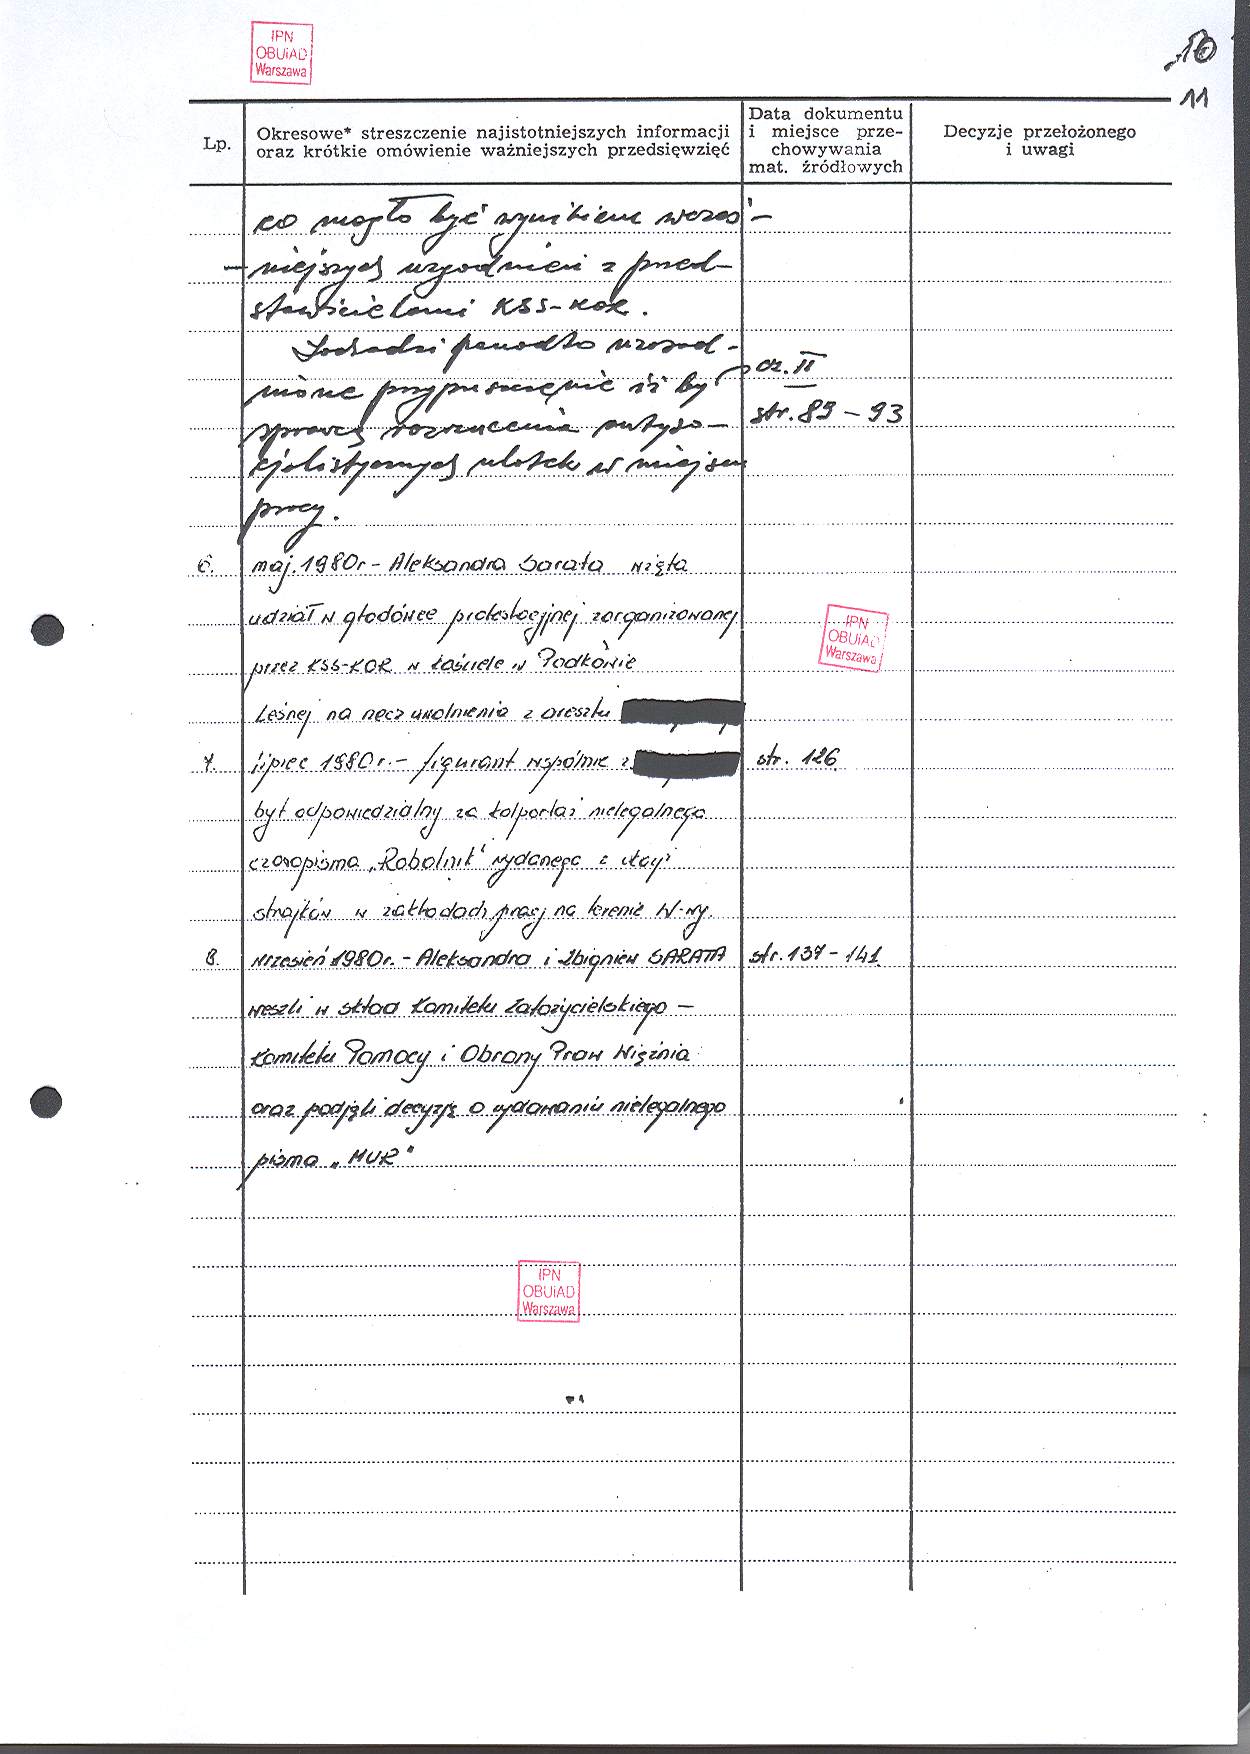 IPN
OBUiAD
Warszawa
10
11
Lp.
Okresowe* streszczenie najistotniejszych informacji
oraz krótkie omówienie ważniejszych przedsięwzięć
Data dokumentu
i miejsce prze-
chowywania
mat. źródłowych
Decyzje przełożonego
i uwagi
co mogło być wynikiem wcześ-
niejszych uzgodnień z przed-
stawicielami KSS-KOR.
Zachodzi ponadto uzasad-
nione przypuszczenie iż był
cz. II
sprawcą rozrzucenia antyso-
str. 89 - 93
cjalistycznych ulotek w miejscu
pracy.
6. maj 1980r - Aleksandra Sarata wzięła
udział w głodówce protestacyjnej zorganizowanej
IPN
OBUiAD
Warszawa
przez KSS-KOR w kościele w Podkowie
Leśnej na rzecz uwolnienia z aresztu
7. lipiec 1980r. - figurant wspólnie z str. 126
był odpowiedzialny za kolportaż nielegalnego
czasopisma "Robotnik" wydanego z okazji
strajków w zakładach pracy na terenie W-wy.
8. wrzesień 1980r. - Aleksandra i Zbigniew SARATA str. 137 - 141
weszli w skład Komitetu Założycielskiego -
Komitetu Pomocy i Obrony Praw Więźnia
oraz podjęli decyzję o wydawaniu nielegalnego
pisma "MUR"
IPN
OBUiAD
Warszawa